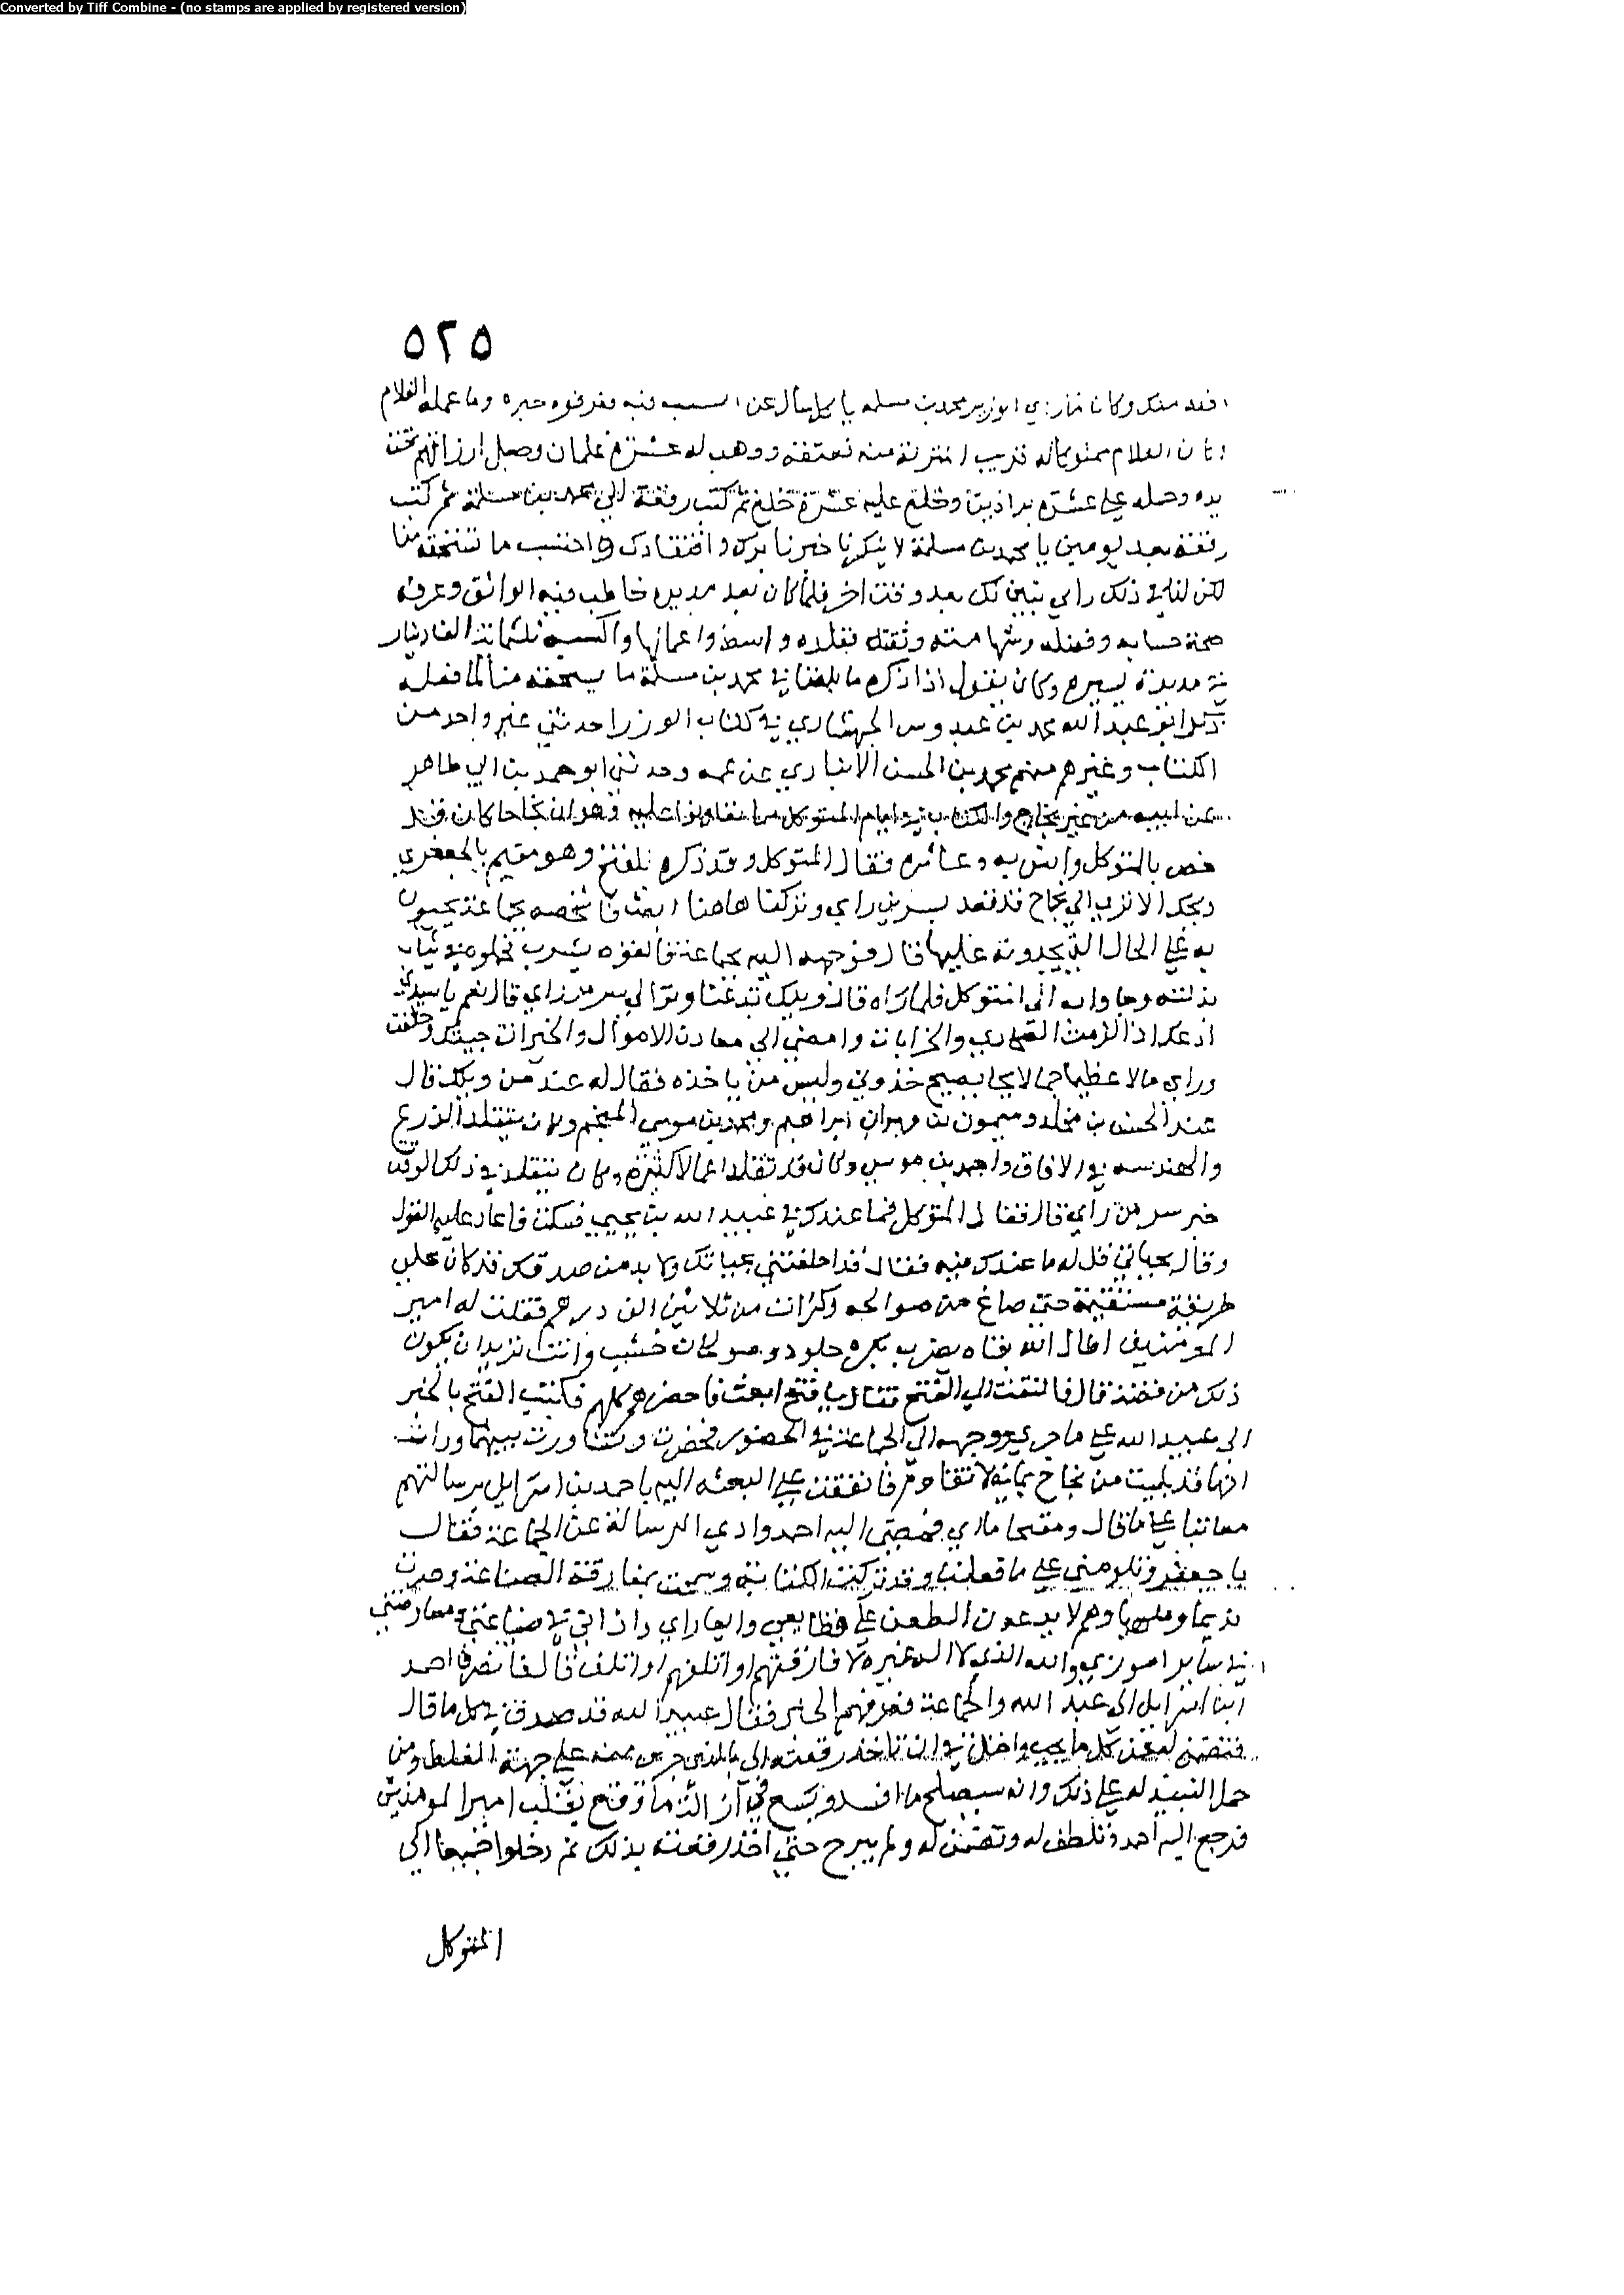 Converted by Tiff Combine - (no stamps are applied by registered version)
٥٢٥
محمد بن مسلمه يا يسال عن السبب فيه فعرفوه خبره وما عمله الغلام
الغلام مملوكا له قريب منه فعتقه ووهب له عشرة غلمان وجعل ارزاقهم تحت
يده وحمله علي عشرة براذين وخلع عليه عشرة خلع ثم كتب رقعة الي محمد بن مسلمة ثم كتب
رقعة بعد يومين يا محمد بن مسلمة لا خيرنا برك وافتقادك واحتسب ما تستحقه منا
لكن لنا في ذلك راي يتبين لك بعد وقت اخر فلما كان بعد خاطب فيه الواثق وعرفه
صحة حسابه وفضله وثقته فقلده واسط واعمالها واكسبه ثلثماية الف دينار
في مديدة يسيره وكان يقول اذا ذكره ما بلغنا في محمد بن مسلمة ما يستحقه منا لما فعله
ذكر ابو عبد الله محمد بن عبدوس الجهشاري في كتاب الوزرا حدثني غير واحد من
الكتاب وغيرهم منهم محمد بن الحسن الانباري عن عمه وحدثني ابو حمد بن ابي طاهر
عن ابيه من خبر نجاح والكتاب في ايام المتوكل عليه وهو ان نجاحا كان قد
خص بالمتوكل وانس به وعاشره فقال المتوكل وقد ذكره للفتح وهو مقيم بالجعفري
ويحك الا تري الي نجاح قد قعد بسر من راي وتركنا هاهنا ابعث فاشخصه جماعة يجيون
به علي الحال التي يجدونه عليها قال فوجه اليه جماعة فالفوه يشرب فحملوه في ثياب
بذلته وجاوا به الي المتوكل فلما راه قال ويلك تدعنا وتوالي سر من راي قال نعم يا سيدي
ادعك اذا لزمت الصحاري والخرابات وامضي الي معادن الاموال والخيرات جيتك وخلفت
وراي مالا عظيما جما لا يحا يصيح خذوني وليس من ياخذه فقال له عند من ويلك قال
عند الحسن بن مخلد وميمون بن ابراهيم ومحمد بن موسي المنجم وكان يتقلد الذرع
والهندسه في الافاق واحمد بن موسي وكان قد تقلد اعمالا كثيره وكان يتقلد في ذلك الوقت
خبر سر من راي قال فقال المتوكل فما عندك في عبيد الله بن يحيي فسكت فاعاد عليه القول
وقال بحياتي قل له ما عندك فيه فقال قد احلفتني بحياتك ولا بد من صدقك قد كان علي
طريقة مستقيمة حتي صاغ من صوالجه وكرات من ثلاثين الف درهم فقلت له امير
المومنين اطال الله بقاه يضرب بكره جلود وصولجان خشب وانت تريد ان يكون
ذلك من فضة قال فالتفت الي الفتح فقال يا فتح ابعث فاحضرهم كلهم فكتب الفتح بالخبر
الي عبيد الله علي ما جري ووجه الي الجماعة في الحضور فحضرت وتشاورت بينها ورات
انها قد بليت من نجاح بما لا تقاومه فاتفقت علي البعثه اليه باحمد بن اسرايل برسالتهم
معاتبا علي ما قال فمضي اليه احمد وادي الرسالة عن الجماعة فقال
يا جعفر وتلومني علي ما فعلت وقد تركت الكتابة بمفارقة الصناعة وصرت
نديما وهم لا يدعون الطعن علي وازرايي في صناعتي ومعارضتي
في ساير اموري والله الذي لا اله غيره لا فارقتهم او اتلفهم او اتلف قال فانصرف احمد
ابن اسرايل الي عبد الله والجماعة فعرفهم الخبر فقال عبيد الله قد صدق في كل ما قال
فتضمن له عني كل ما يجب واحتل في ان تاخذ رقعته الي بالذي جري منه علي جهة الغلط ومن
حمل النبيذ له علي ذلك وانه سيصلح ما افسد ويسع في ازالة ما وقع بقلب امير المومنين
فرجع اليه احمد وتلطف له وتضمن له ولم يبرح حتي اخذ رقعته بذلك ثم دخلوا جميعا الي
المتوكل